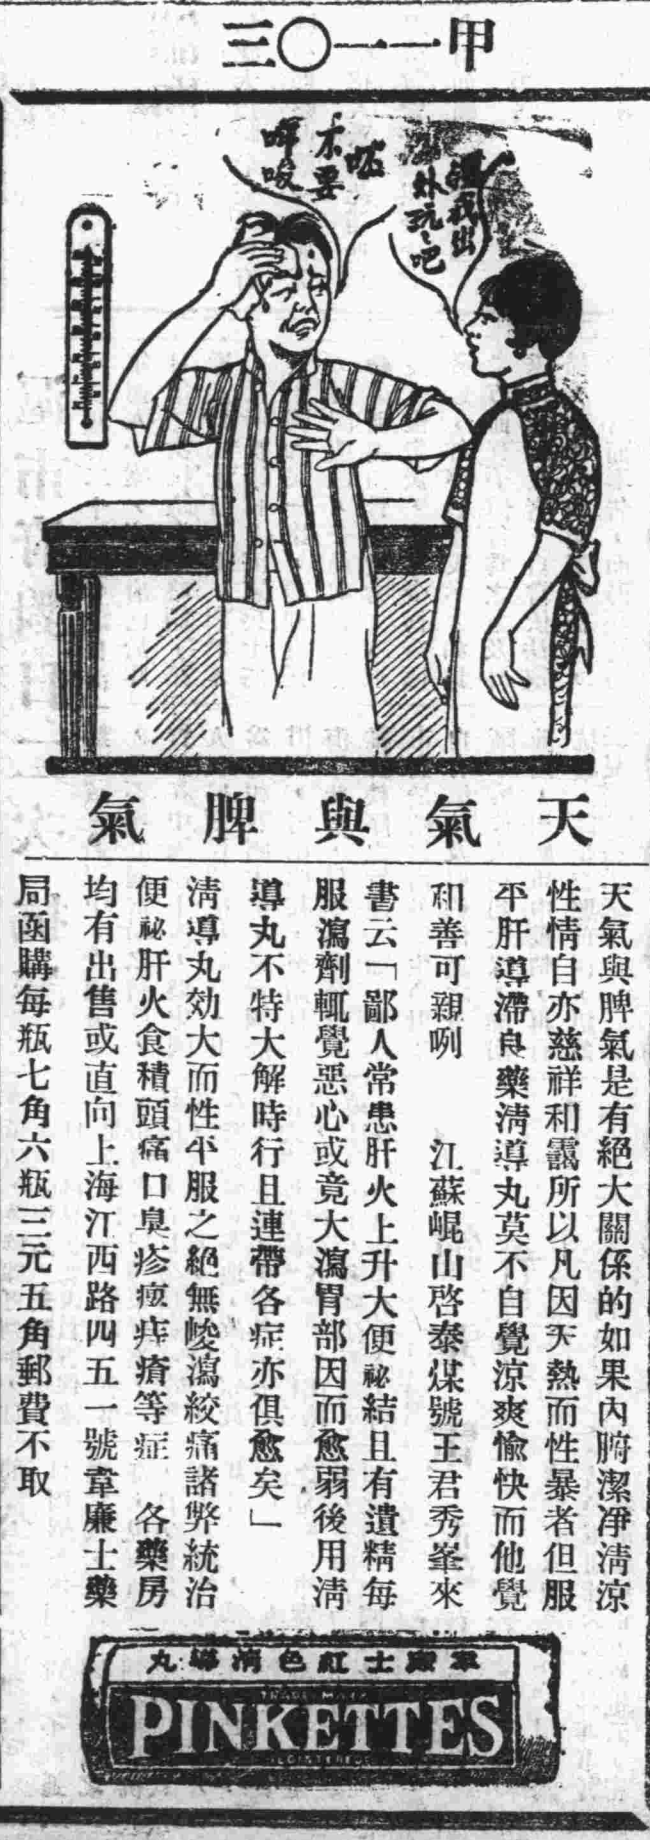 甲一一〇三
讓我出
外玩玩吧
不要
天氣與脾氣
天氣與脾氣是有絕大關係的如果內腑潔凈清涼
性情自亦慈祥和靄所以凡因天熱而性暴者但服
平肝導滯良藥清導丸莫不自覺涼爽愉快而他覺
和善可親咧　江蘇崐山啓泰煤號王君秀峯來
書云「鄙人常患肝火上升大便祕結且有遺精每
服瀉劑輒覺惡心或竟大瀉胃部因而愈弱後用清
導丸不特大解時行且連帶各症亦俱愈矣」
清導丸効大而性平服之絕無峻瀉絞痛諸弊統治
便祕肝火食積頭痛口臭疹瘂痔瘡等症　各藥房
均有出售或直向上海江西路四五一號韋廉士藥
局函購每瓶七角六瓶三元五角郵費不取
韋廉士紅色清導丸
TRADE MARK
PINKETTES
REGISTERED